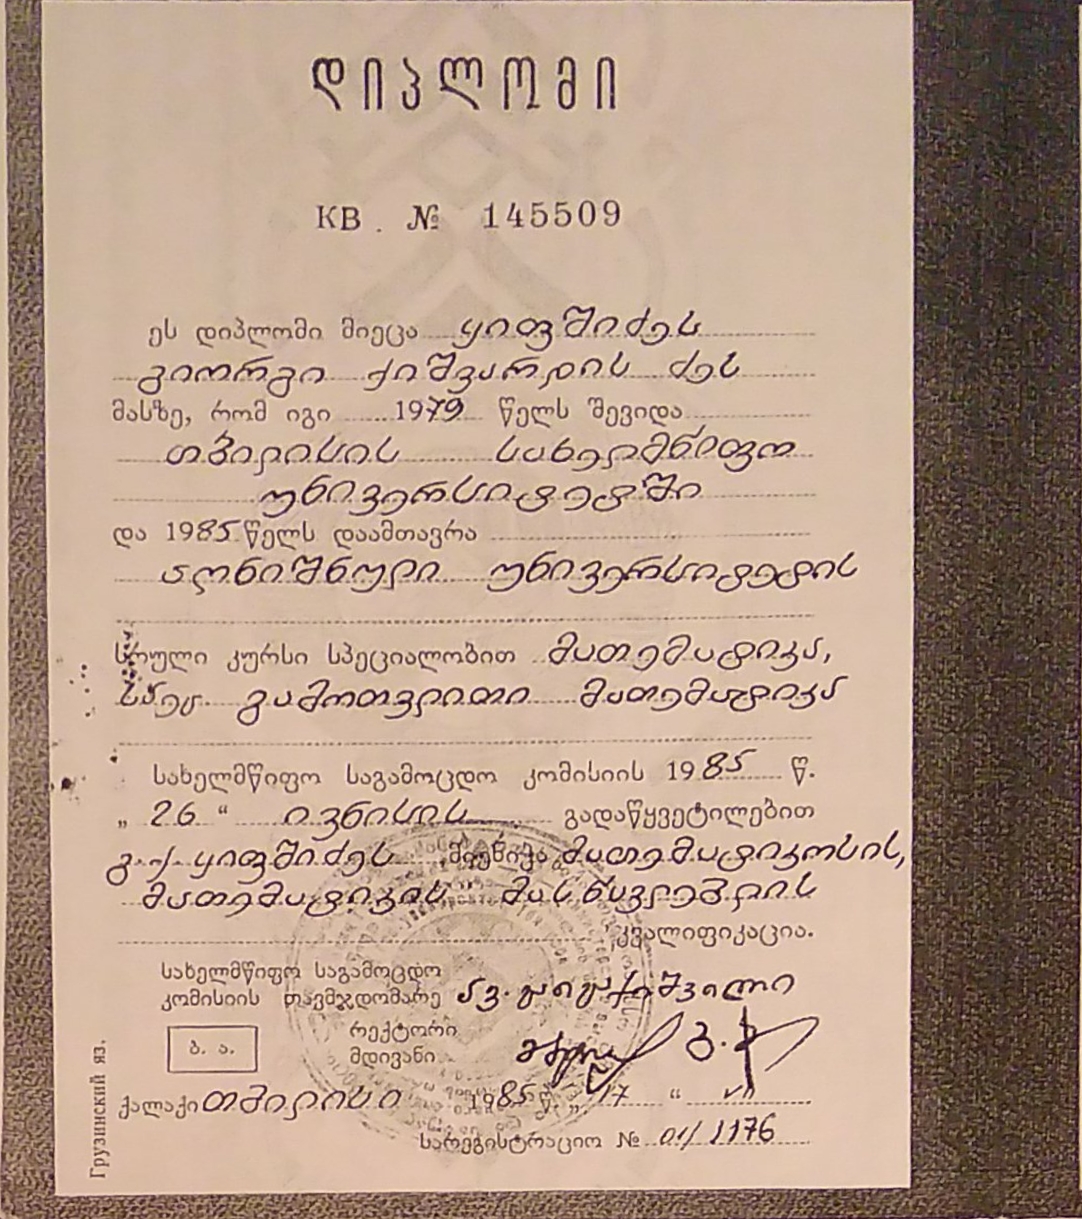 დიპლომი
КВ. № 145509
ეს დიპლომი მიეცა ყიფშიძეს
გიორგი ქიშვარდის ძეს
მასზე, რომ იგი 1979 წელს შევიდა
თბილისის სახელმწიფო
უნივერსიტეტში
და 1985 წელს დაამთავრა
აღნიშნული უნივერსიტეტის
სრული კურსი სპეციალობით მათემატიკა,
გამოთვლითი მათემატიკა
სახელმწიფო საგამოცდო კომისიის 1985 წ.
„26“ ივნისის გადაწყვეტილებით
გ. ქ. ყიფშიძეს მიენიჭა მათემატიკოსის,
მათემატიკის მასწავლებლის
კვალიფიკაცია.
სახელმწიფო საგამოცდო
კომისიის თავმჯდომარე
რექტორი
მდივანი
ბ. ა.
ქალაქი თბილისი 1985 წ. „17“ VII
სარეგისტრაციო № 01/1176
Грузинский яз.